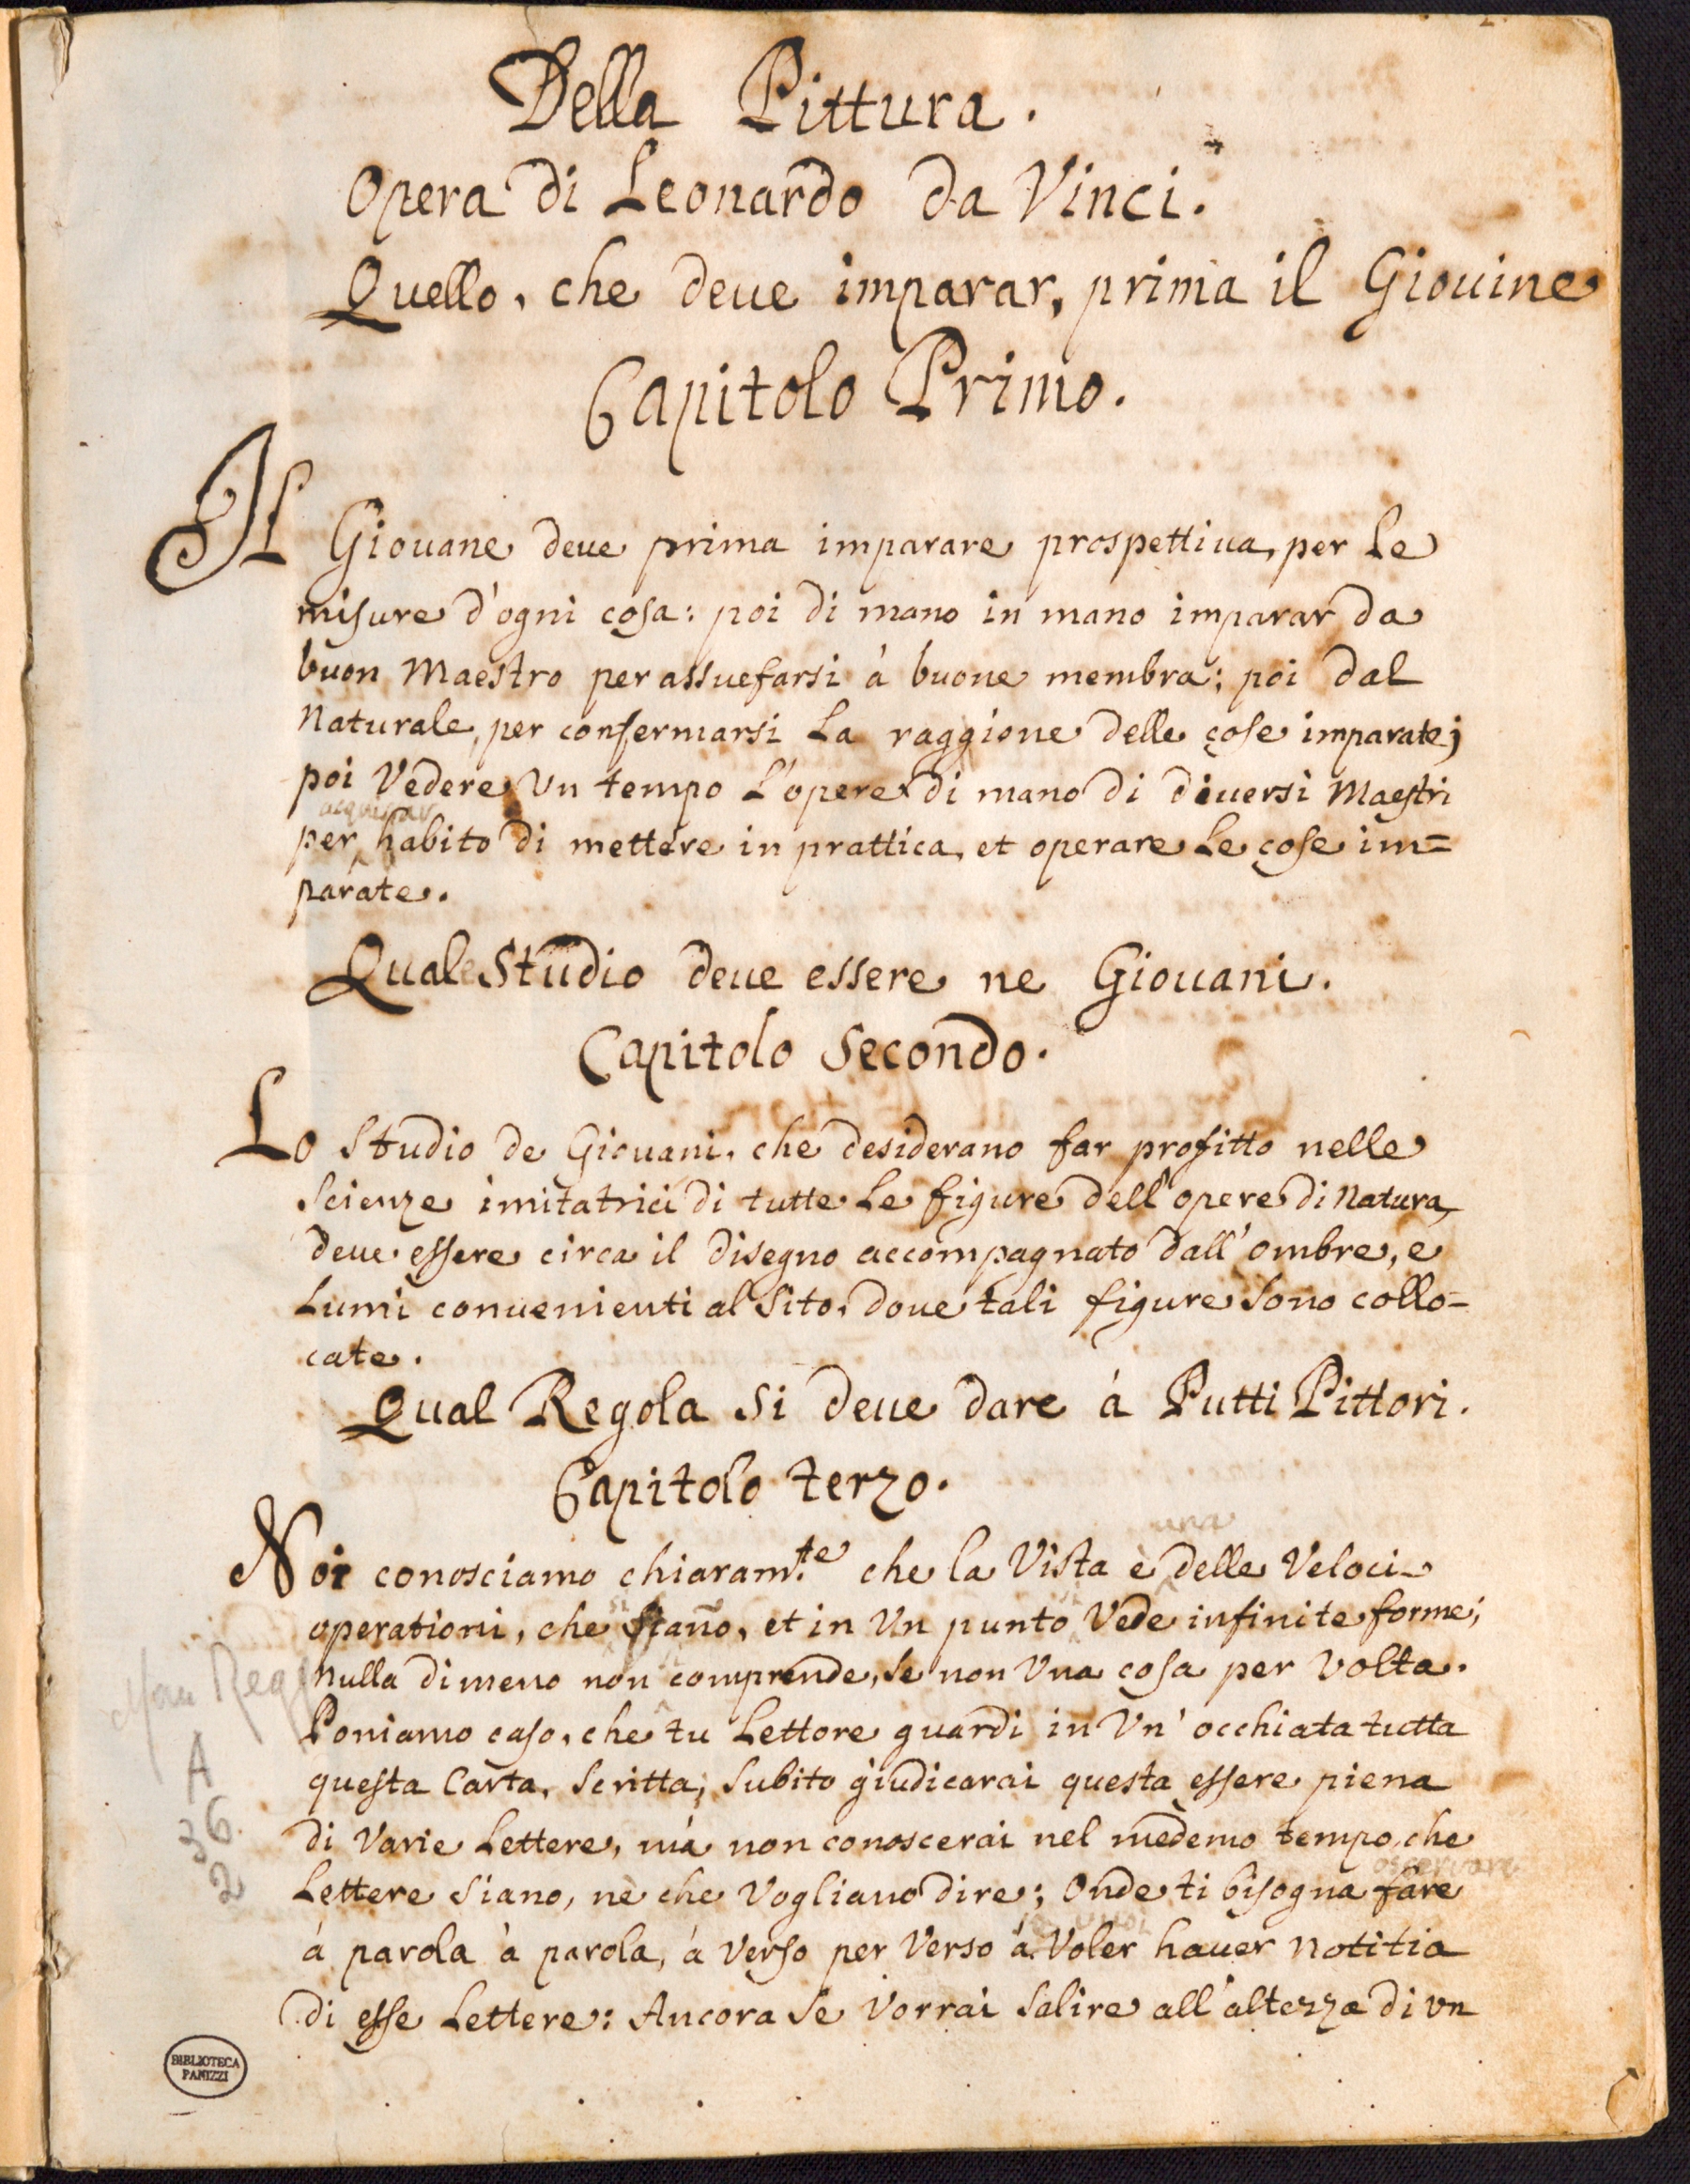 Della Pittura.
Opera di Leonardo da Vinci.
Quello, che deue imparar, prima il Giouine
Capitolo Primo.
Il Giouane deue prima imparare prospettiua, per le
misure d'ogni cosa: poi di mano in mano imparar da
buon Maestro per assuefarsi à buone membra; poi dal
Naturale, per confermarsi la raggione delle cose imparate;
poi Vedere Vn tempo l'opere di mano di diuersi Maestri
acquistar
per habito di mettere in prattica, et operare le cose im=
parate.
Qual Studio deue essere ne Giouani.
Capitolo Secondo.
Lo Studio de Giouani, che desiderano far profitto nelle
Scienze imitatrici di tutte le figure dell'opere di Natura,
deue essere circa il disegno accompagnato dall'ombre, e
Lumi conuenienti al Sito, doue tali figure sono collo=
cate.
Qual Regola si deue dare à Putti Pittori.
Capitolo terzo.
una
Noi conosciamo chiaram.te che la Vista è delle Veloci
operationi, che siano, et in Vn punto Vede infinite forme;
nulla di meno non comprende, se non Vna cosa per volta.
Poniamo caso, che tu Lettore guardi in Vn'occhiata tutta
questa Carta, Scritta; subito giudicarai questa essere piena
di Varie Lettere, mà non conoscerai nel medemo tempo, che
osservare
Lettere siano, nè che Vogliano dire; Onde ti bisogna fare
à parola à parola, à Verso per Verso à Voler hauer notitia
di esse Lettere: Ancora se Vorrai salire all'altezza di vn
Regg
A
36.
2
BIBLIOTECA
PANIZZI